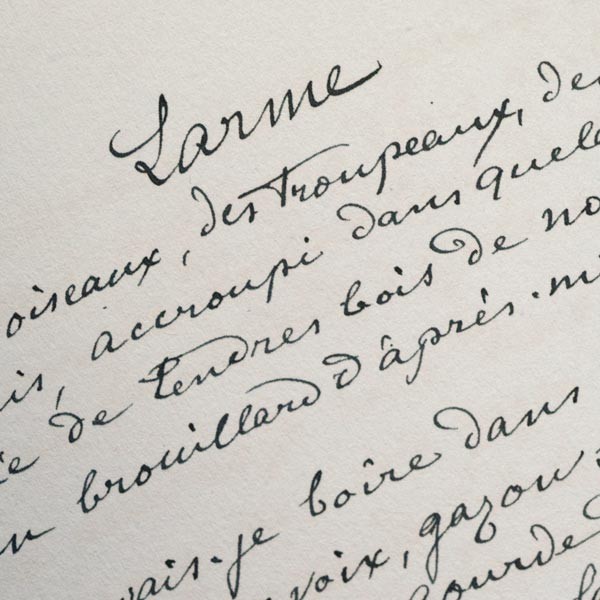 Larme
oiseaux, des troupeaux, de
is, accroupi dans quel
e de tendres bois de no
n brouillard d'après-mi
vais-je boire dans
voix, gazon
ourde